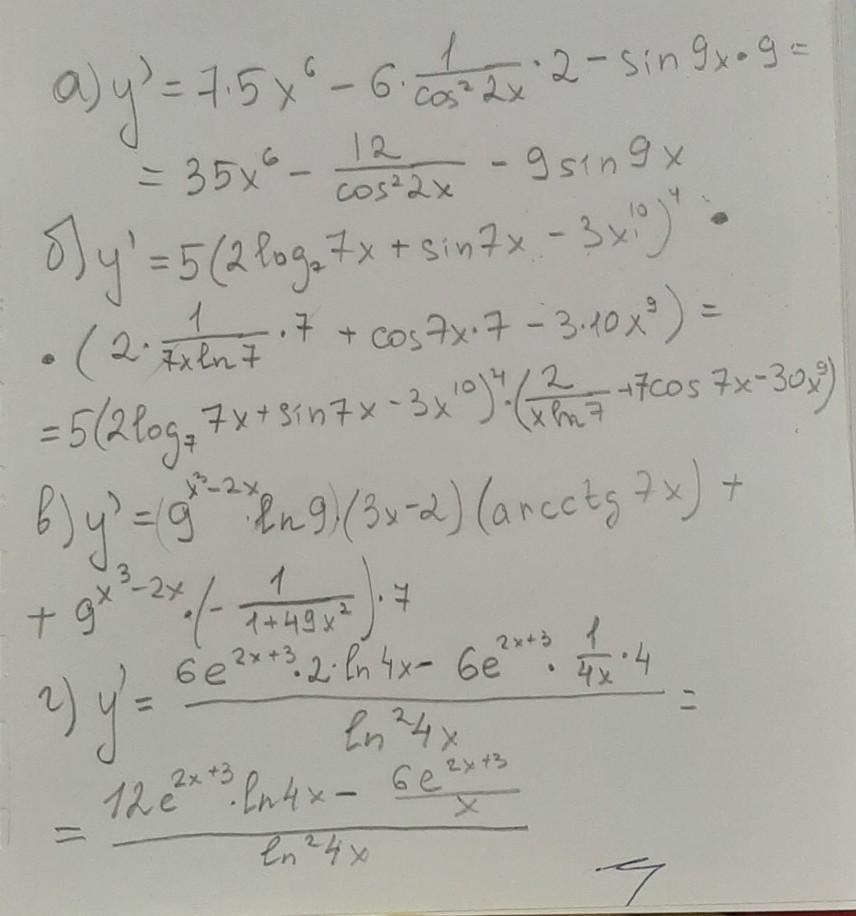 а) y' = 7·5x⁶ − 6·1/cos²2x·2 − sin9x·9 =
= 35x⁶ − 12/cos²2x − 9sin9x
б) y' = 5(2log₇7x + sin7x − 3x¹⁰)⁴ ·
· (2·1/7xln7·7 + cos7x·7 − 3·10x⁹) =
= 5(2log₇7x + sin7x − 3x¹⁰)⁴·(2/xln7 + 7cos7x − 30x⁹)
в) y' = (9^(x³−2x)·ln9)(3x−2)(arcctg7x) +
+ 9^(x³−2x)·(−1/1+49x²)·7
г) y' = 6e^(2x+3)·2·ln4x − 6e^(2x+3)·1/4x·4 / ln²4x =
= 12e^(2x+3)·ln4x − 6e^(2x+3)/x / ln²4x